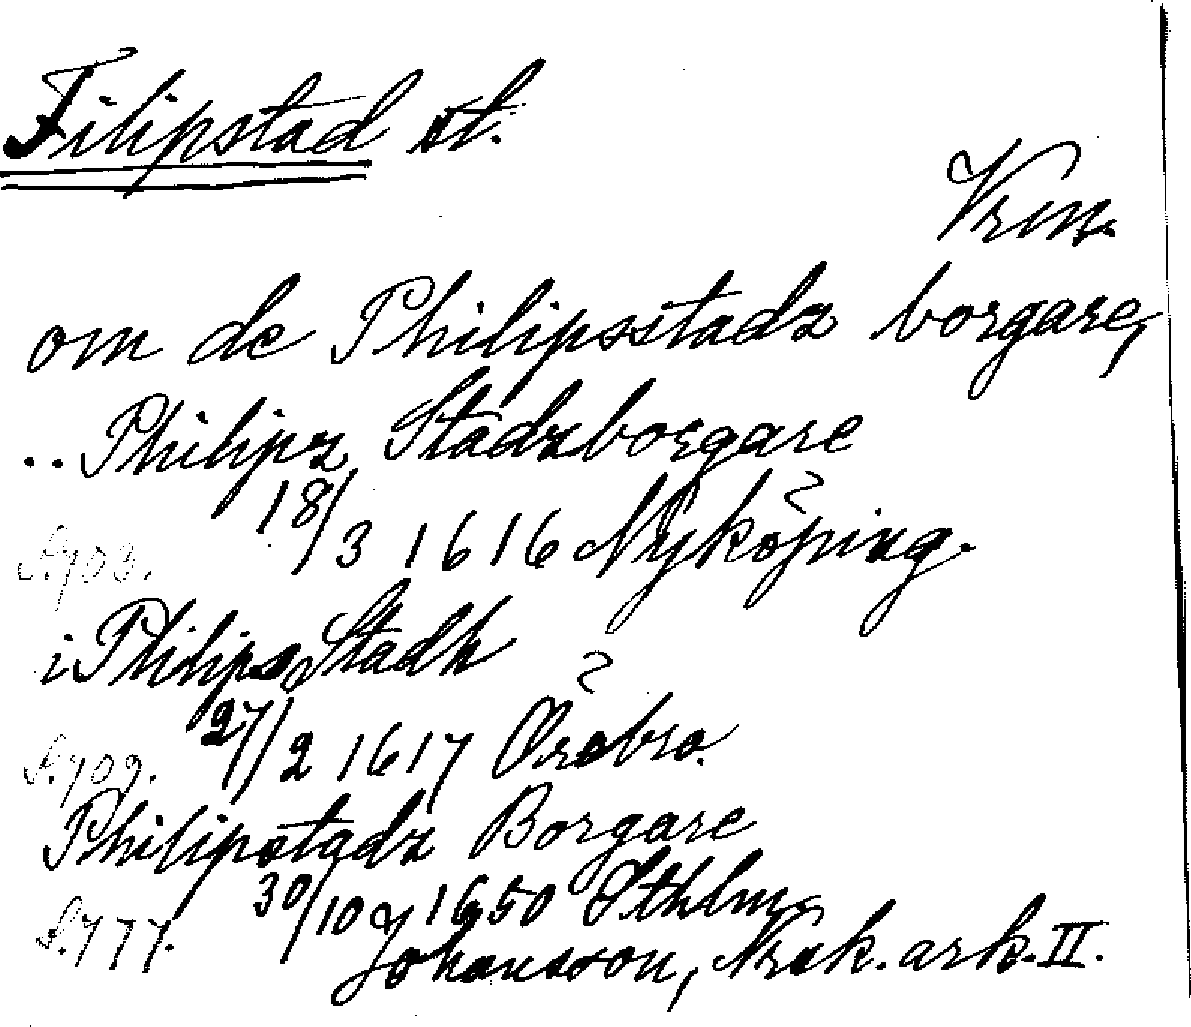 Filipstad st.
Vrm.
om de Philipsstadz borgare,
.. Philipz Stadzborgare
S. 703. 18/3 1616 Nyköping.
i Philips Stadh
S. 709. 27/2 1617 Örebro.
Philipstadz Borgare
S. 777. 30/10 1650 Sthlm.
Johansson, Nrak. ark. II.